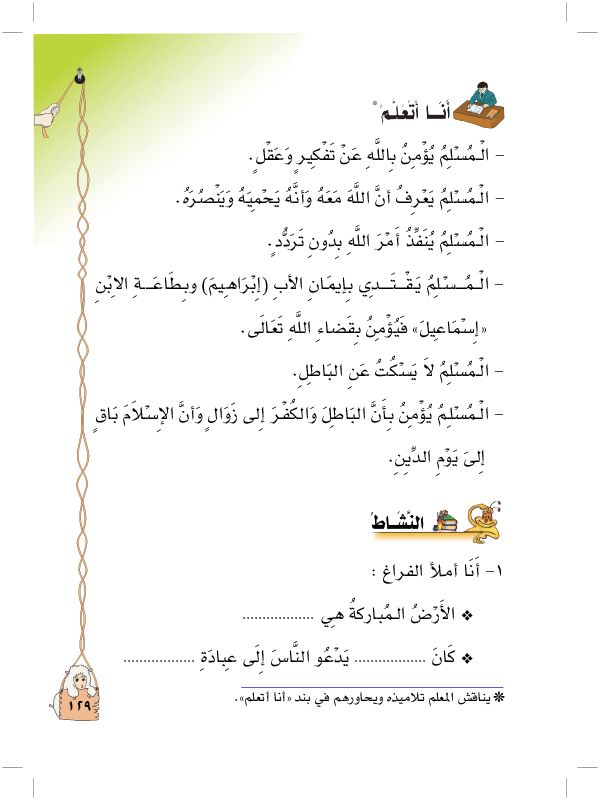 أَنَـا أَتَعَلَّـمُ *
– الْـمُسْلِمُ يُؤْمِنُ بِاللَّهِ عَنْ تَفْكِيرٍ وَعَقْلٍ.
– الْـمُسْلِمُ يَعْرِفُ أنَّ اللَّهَ مَعَهُ وَأنَّهُ يَحْمِيَهُ وَيَنْصُرَهُ.
– الْـمُسْلِمُ يُنَفِّذُ أَمْرَ اللَّهِ بِدُونِ تَرَدُّدٍ.
– الْـمُـسْلِمُ يَـقْـتَـدِي بِإيمَانِ الأبِ (إبْرَاهِيمَ) وبِطَاعَـةِ الابْنِ
«إسْمَاعِيلَ» فَيُؤْمِنُ بِقَضَاءِ اللَّهِ تَعَالَى.
– الْـمُسْلِمُ لاَ يَسْكُتُ عَنِ البَاطِلِ.
– الْـمُسْلِمُ يُؤْمِنُ بِأَنَّ البَاطِلَ وَالكُفْرَ إلى زَوَالٍ وَأنَّ الإسْلَامَ بَاقٍ
إلىَ يَوْمِ الدِّينِ.
النَّشَـاطُ
١– أَنَا أملأ الفراغ :
❖ الأَرْضُ الـمُباركةُ هِي ..................
❖ كَانَ .................. يَدْعُو النَّاسَ إِلَى عبِادَةِ ..................
❋ يناقش المعلم تلاميذه ويحاورهم في بند «أنا أتعلم».
١٢٩